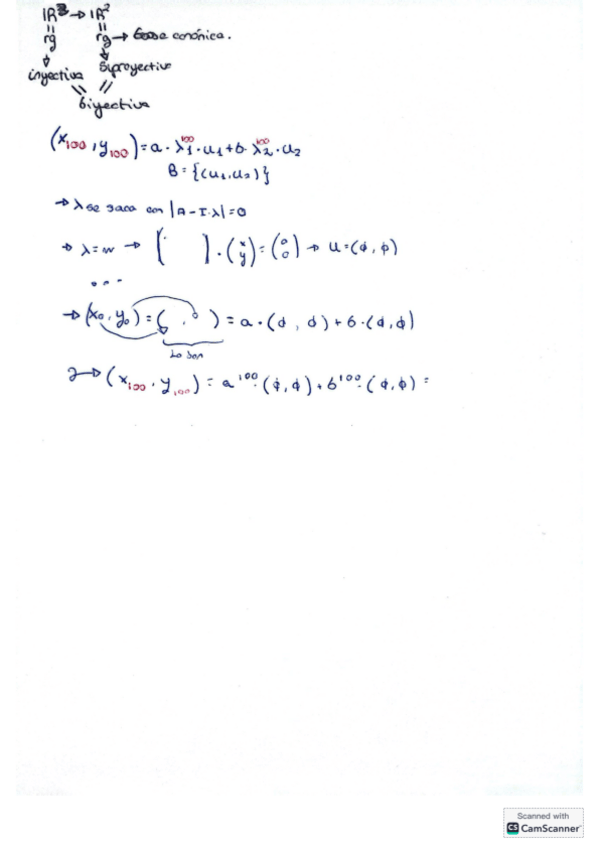 IR³ → IR²
rg rg → base canónica.
inyectiva suproyectiva
biyectiva
(x₁₀₀, y₁₀₀) = a · λ₁¹⁰⁰ · u₁ + b · λ₂¹⁰⁰ · u₂
B = {(u₁, u₂)}
→ λ se saca con |A - I·λ| = 0
→ λ = w → [ ] · (x y) = (0 0) → u = (ϕ, ϕ)
...
→ (x₀, y₀) = ( , ) = a · (ϕ, ϕ) + b · (ϕ, ϕ)
Lo dan
2 → (x₁₀₀, y₁₀₀) = a¹⁰⁰ · (ϕ, ϕ) + b¹⁰⁰ · (ϕ, ϕ) =
Scanned with
CS CamScanner